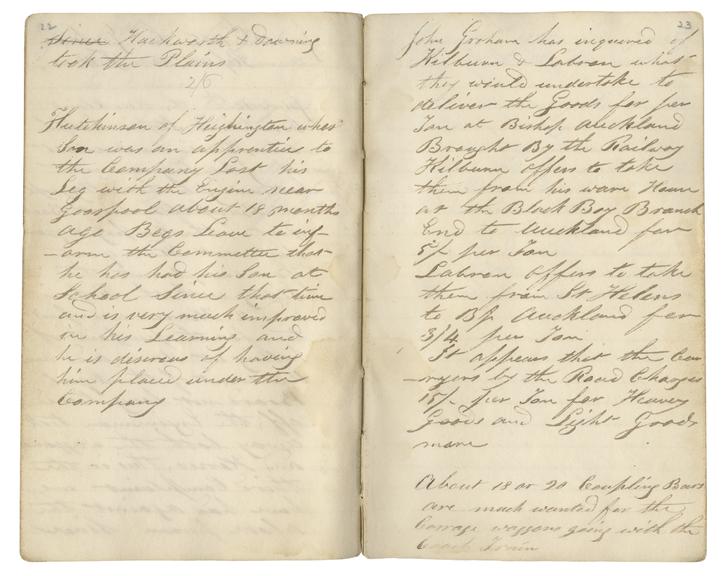 22
Since Hackworth & Downing
took the Plains
2/6
Hutchinson of Heighington whos
Son was an apprentice to
the Company Lost his
Leg with the Engine near
Goospool about 18 months
ago Begs Leave to inf-
-orm the Committee that
he has had his Son at
School Since that time
and is very much improved
in his Learning and
he is desirous of having
him placed under the
Company
23
John Graham has inquired of
Kilburn & Labron what
they would undertake to
deliver the Goods for per
Ton at Bishop Auckland
Brought By the Railway
Kilburn offers to take
them from his ware House
at the Black Boy Branch
End to Auckland for
5/- per Ton
Labron offers to take
them from St Helens
to Bp Auckland for
3/4 per Ton
It appears that the Car-
-ryers by the Road Charges
15/- per Ton for Heavey
Goods and Light Goods
more
About 18 or 20 Coupling Bars
are much wanted for the
Carrage waggons going with the
Coach Train